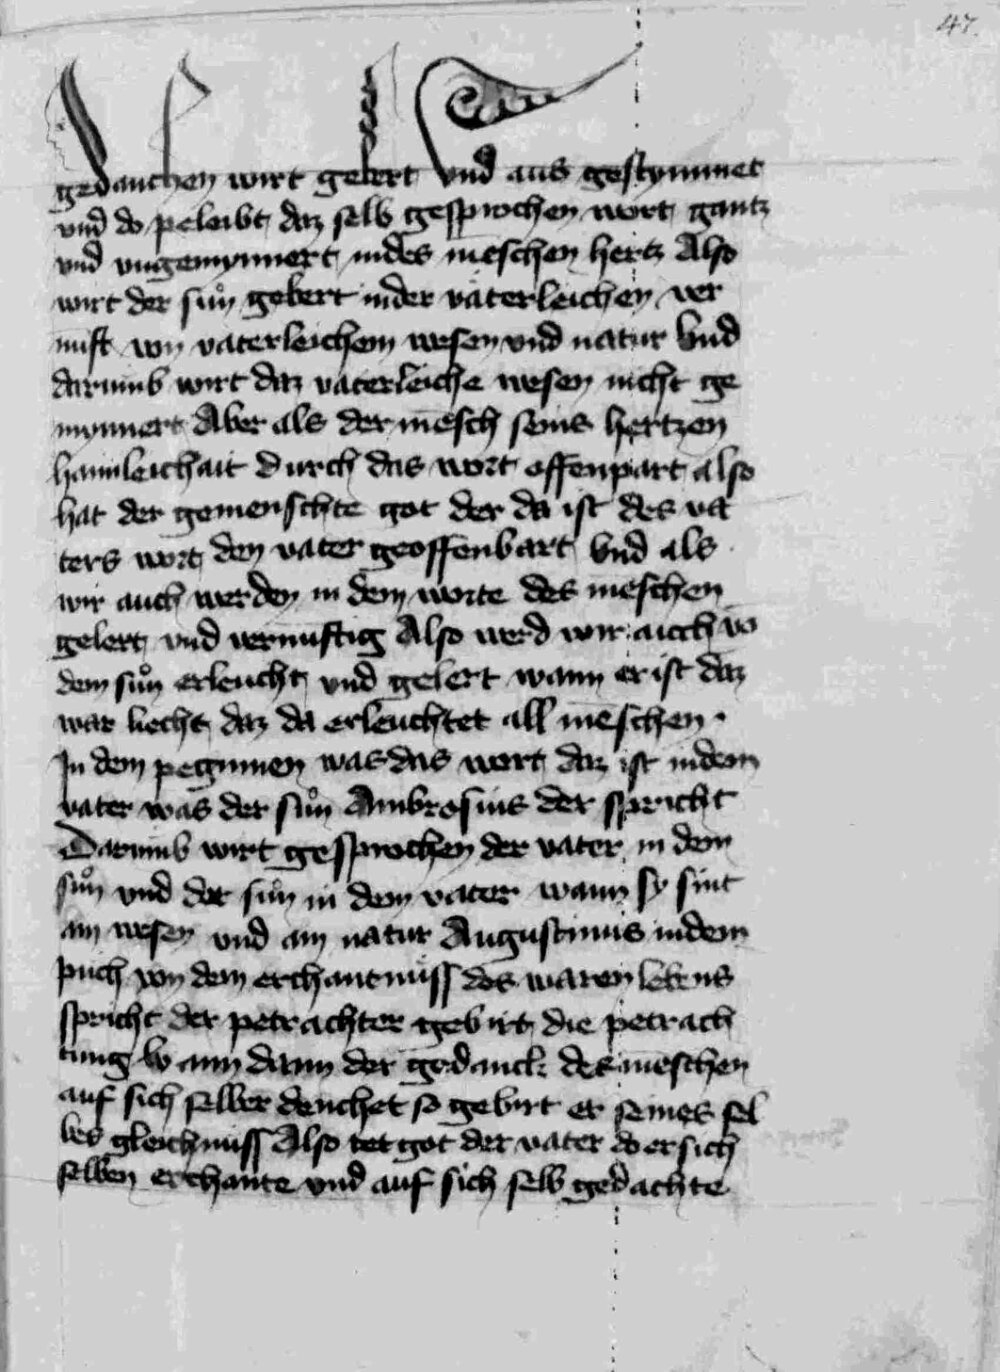 47.
gedanchen wirt gelert vnd aus gestymmet
vnd do peleibt daz selb gesprochen wort gantz
vnd vngemynnert indes meschen hertz Also
wirt der suͦn gebert inder väterleichen ver
nuft von vaterleichem wesen vnd natur Vnd
darumb wirt daz väterleiche wesen nicht ge
mynnert Aber als der mēsch seins hertzen
haimleichait durch das wort offenpart also
hat der gemenschte got der da ist des va
ters wort den vater geoffenbart Vnd als
wir auch werden in dem worte des meschen
gelert vnd vernuftig Also werd wir auch vō
dem suͦn erleucht vnd gelert wann er ist daz
war liecht daz da erleuchtet all mēschen.
In dem pegunnen was das wort daz ist indem
vater was der suͦn Ambrosius der spricht
Darumb wirt gesprochen der vater in dem
suͦn vnd der suͦn in dem vater wann sy sint
ain wesen vnd ain natur Augustinus indem
puch von dem erchantnuss des waren lebens
spricht der petrachter gebirt die petrach
tung Wann dann der gedanck des meschen
auf sich selber denchet so gebirt er seines sel
bes gleichnuss Also tet got der vater do er sich
selben erchante vnd auf sich selb gedachte